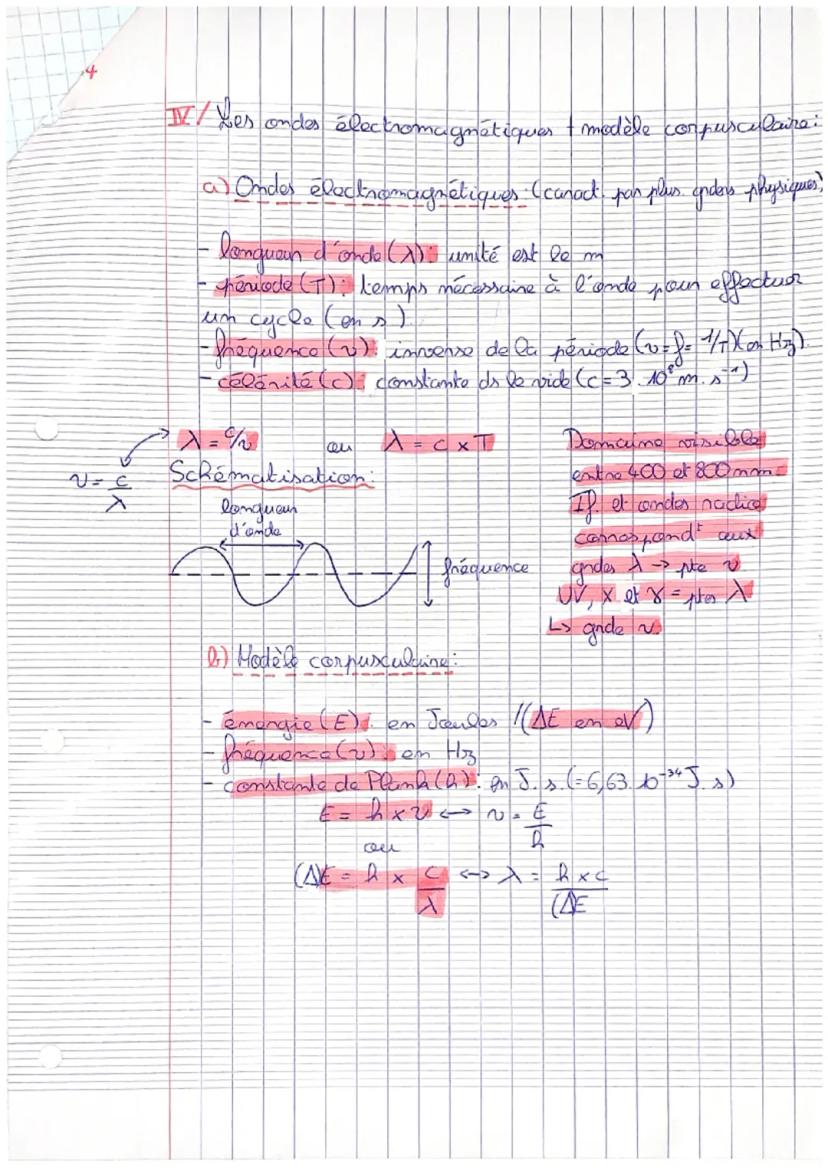 4
IV/ Les ondes électromagnétiques + modèle corpusculaire:
a) Ondes électromagnétiques: (caract. par plus. gdeurs physiques)
- longueur d'onde (λ): unité est le m
- période (T): temps nécessaire à l'onde pour effectuer
un cycle (en s)
- fréquence (ν): inverse de la période (ν = f = 1/T)(en Hz).
- célérité (c): constante ds le vide (c = 3.10⁸ m.s⁻¹)
λ = c/ν ou λ = c × T
ν = c/λ
Schématisation:
longueur
d'onde
fréquence
Domaine visible
entre 400 et 800 nm
If. et ondes radio
correspondᵗ aux
gdes λ → pte ν
UV, X et γ = ptes λ
↳ gnde ν
b) Modèle corpusculaire:
- énergie (E): en Joules /(ΔE en eV)
- fréquence (ν): en Hz
- constante de Plank (h): en J.s.(=6,63.10⁻³⁴ J.s)
E = h × ν ↔ ν = E/h
ou
(ΔE = h × c/λ ↔ λ = h × c/(ΔE